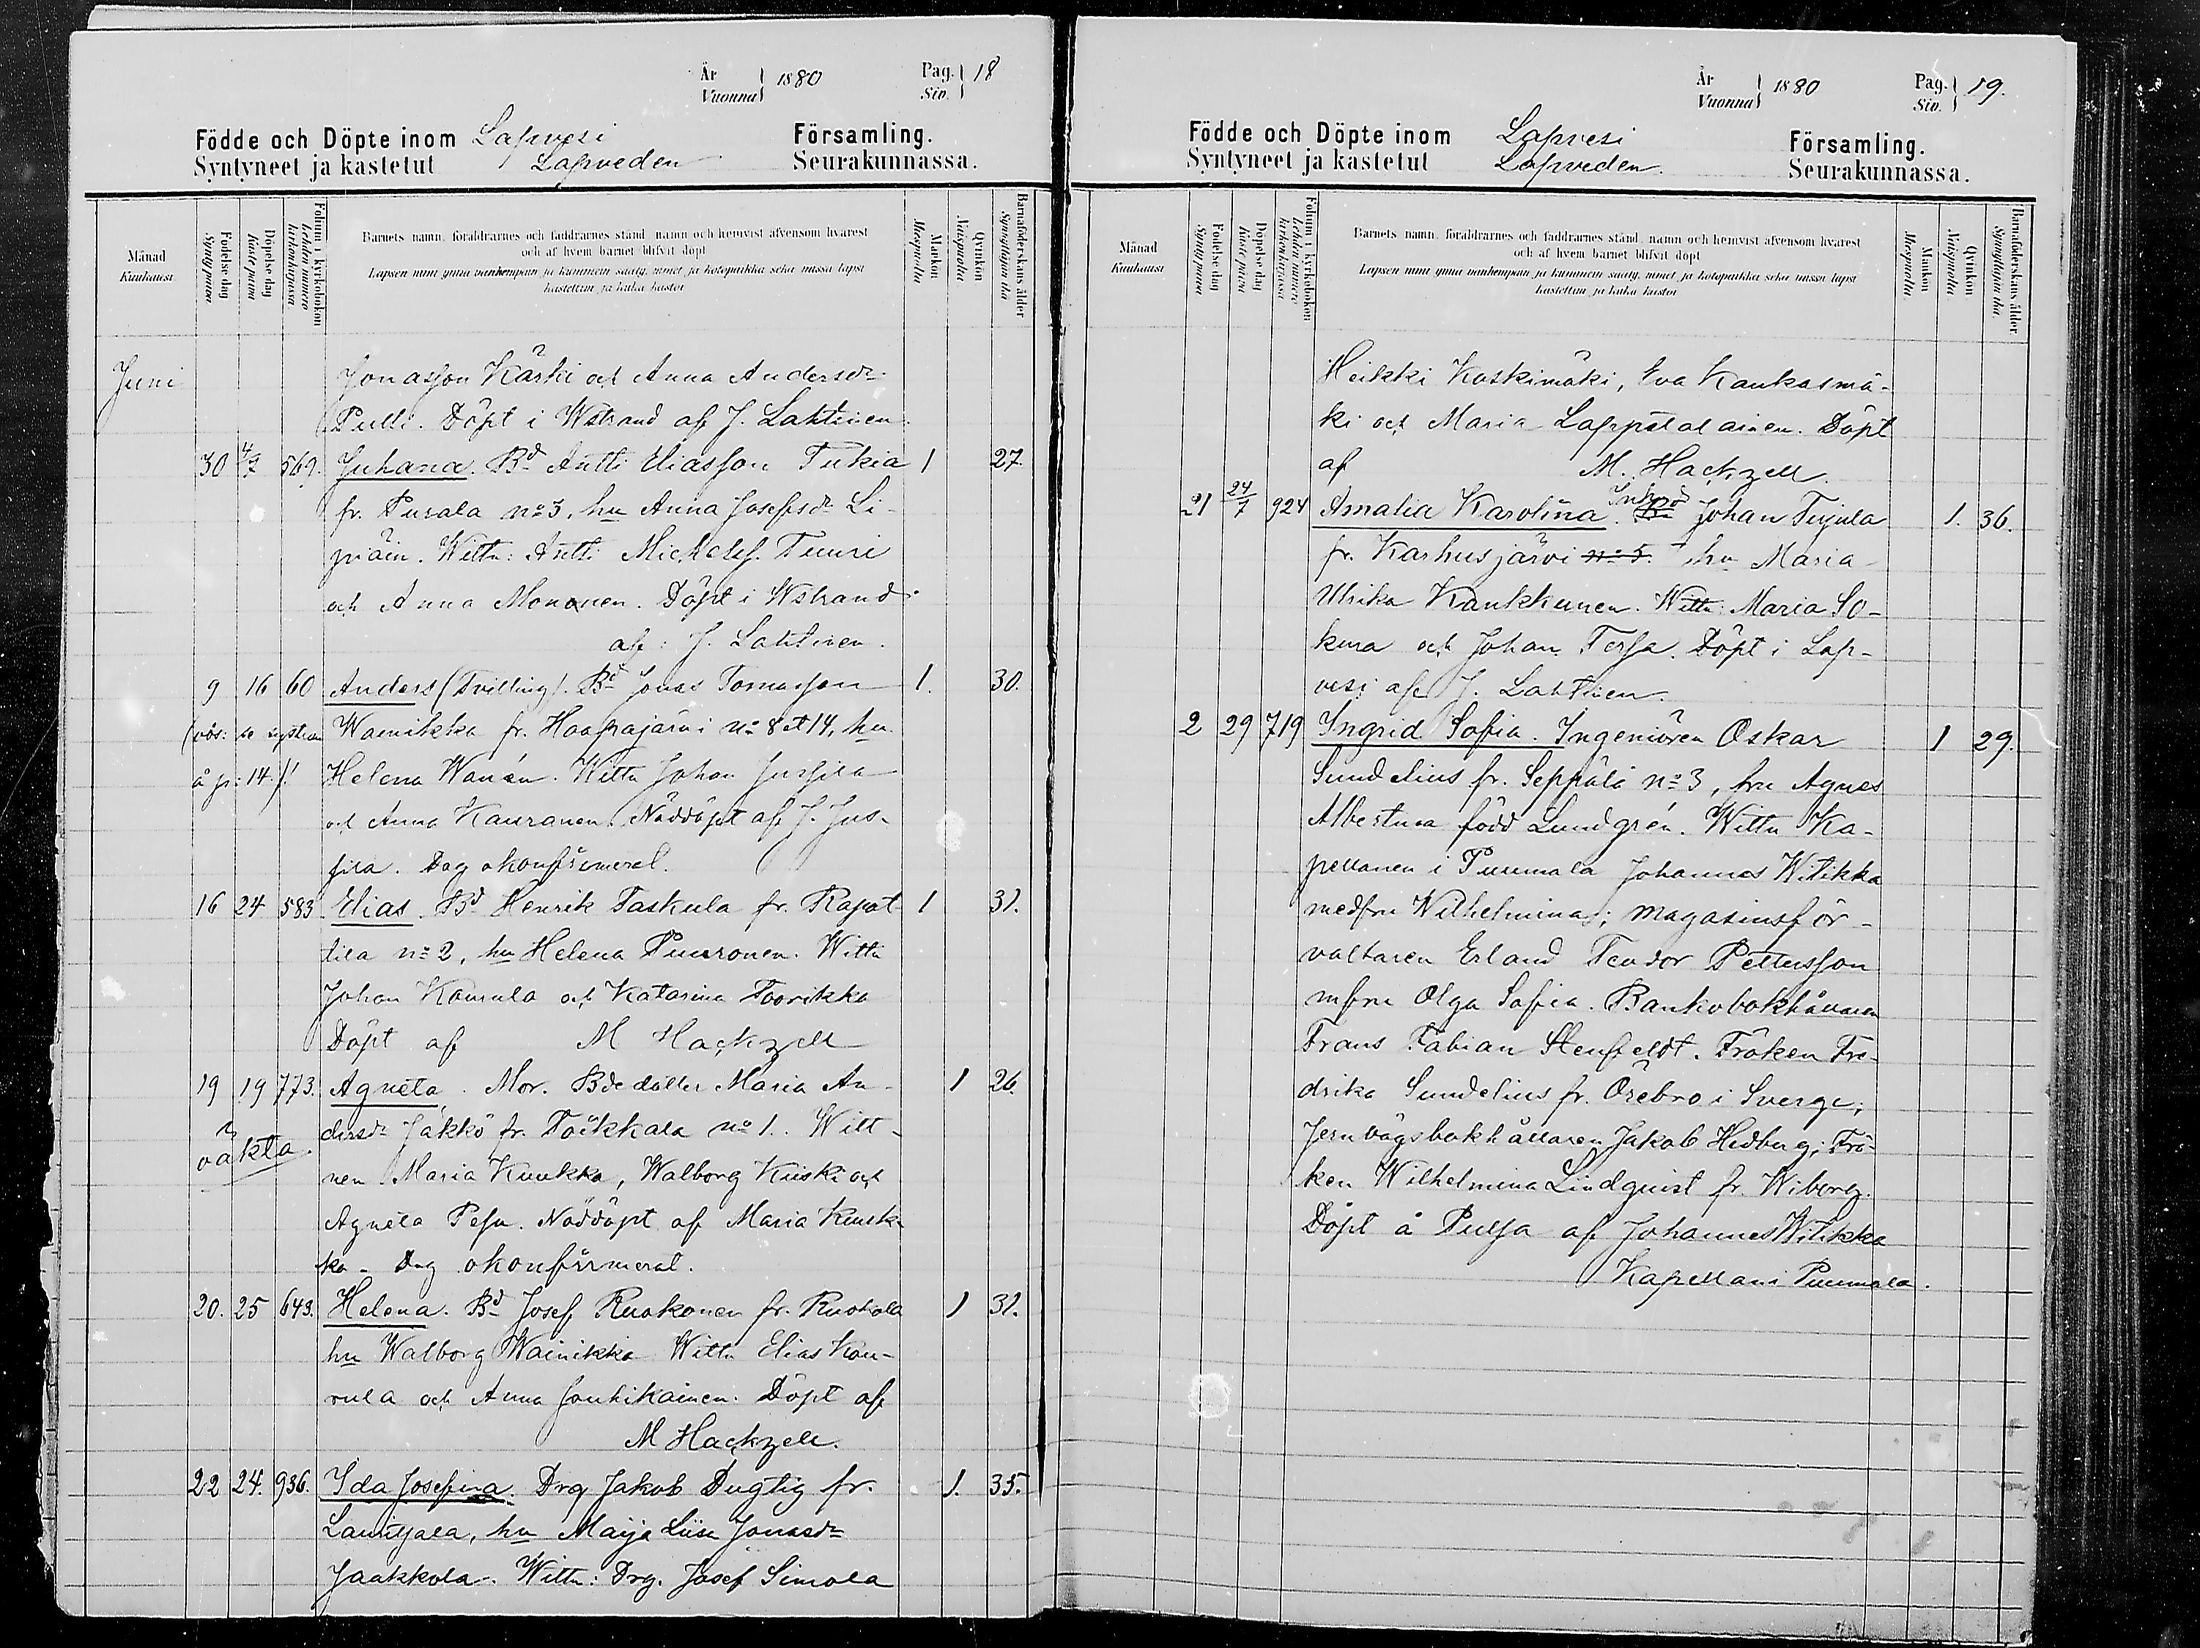 År
Vuonna } 1880
Pag.
Siv. } 18
Födde och Döpte inom Lapvesi Församling.
Syntyneet ja kastetut Lapveden Seurakunnassa.
Månad
Kuukausi
Födelsedag
Syntypäivä
Döpelsedag
Kastepäivä
Folium i kyrkoboken
Lehden numero kirkonkirjassa
Barnets namn, föräldrarnes och faddrarnes stånd, namn och hemvist äfvensom hvarest
och af hvem barnet blifvit döpt
Lapsen nimi ynnä vanhempain ja kummein sääty, nimet ja kotopaikka sekä missä lapsi
kastettiin ja kuka kastoi
Mankön
Miespuolia
Qvinkön
Naispuolia
Barnaföderskans ålder
Synnyttäjän ikä
Juni
Jonasson Kärki och Anna Andersdr
Pulli. Döpt i Wstrand af J. Lahtinen
30 4/7 569. Juhana. Bd Antti Eliasson Tukia 1 27.
fr. Purala no 3, hu Anna Josefsdr Li-
piäin. Wittn: Antti Michelss. Tuuri
och Anna Mononen. Döpt i Wstrand
af: J. Lahtinen.
9 16 60 Anders (Tvilling). Bd Jonas Tomasson 1. 30.
(obs: se system Wainikka fr. Haapajärvi no 8 et 14, hu
å p: 14.)! Helena Wanén. Wittn Johan Jussila
och Anna Kauranen. Nöddöpt af J. Jus-
sila. Dag okonfirmerad.
16 24 583 Elias. Bd Henrik Taskula fr. Rapat- 1 31.
tila no 2, hu Helena Puuronen. Wittn
Johan Kamula och Katarina Toorikka
Döpt af M Hackzell
19 19 773. Agneta. Mor. Bdedotter Maria An- 1 26.
oäkta. dersdr Jäkkö fr. Toikkala no 1. Witt-
nen Maria Kuukka, Walborg Kiiski och
Agneta Pesu. Nöddöpt af Maria Kuuk-
ka. Dag okonfirmerad.
20. 25 643. Helena. Bd Josef Ruokonen fr. Ruohola 1 31.
hu Walborg Wainikka Wittn Elias Kau-
rula och Anna Jouhikainen. Döpt af
M Hackzell.
22 24. 936. Ida Josefina. Drg Jakob Dugtig fr. 1. 35.
Lauritsala, hu Maija Liisa Jonasdr
Jaakkola. Wittn: Drg. Josef Simola
År
Vuonna } 1880
Pag.
Siv. } 19.
Födde och Döpte inom Lapvesi Församling.
Syntyneet ja kastetut Lapveden. Seurakunnassa.
Månad
Kuukausi
Födelsedag
Syntypäivä
Döpelsedag
Kastepäivä
Folium i kyrkoboken
Lehden numero kirkonkirjassa
Barnets namn, föräldrarnes och faddrarnes stånd, namn och hemvist äfvensom hvarest
och af hvem barnet blifvit döpt
Lapsen nimi ynnä vanhempain ja kummein sääty, nimet ja kotopaikka sekä missä lapsi
kastettiin ja kuka kastoi
Mankön
Miespuolia
Qvinkön
Naispuolia
Barnaföderskans ålder
Synnyttäjän ikä.
Heikki Koskimäki, Eva Kaukasmä-
ki och Maria Lappatalainen. Döpt
af M. Hackzell.
21 24/7 924 Amalia Karolina. Bd Johan Tujula 1. 36.
fr. Karhusjärvi no 5. hu Maria
Ulrika Kaukkunen. Wittn: Maria So-
kura och Johan Torsa. Döpt i Lap-
vesi af J. Lahtinen.
2 29 719 Ingrid Sofia. Ingeniören Oskar 1 29.
Sundelius fr. Seppälä no 3, fru Agnes
Albertina född Lundgrén. Wittn Ka-
pellanen i Puumala Johannes Witikka
medfru Wilhelmina; magasinsför-
valtaren Erland Teodor Pettersson
mfru Olga Sofia. Bankobokhållaren
Frans Fabian Stenfeldt. Fröken Fre-
drika Sundelius fr. Örebro i Sverge;
Jernvägsbokhållaren Jakob Hedberg; Frö-
ken Wilhelmina Lindquist fr. Wiborg.
Döpt å Pulsa af Johannes Witikka
Kapellan i Puumala.